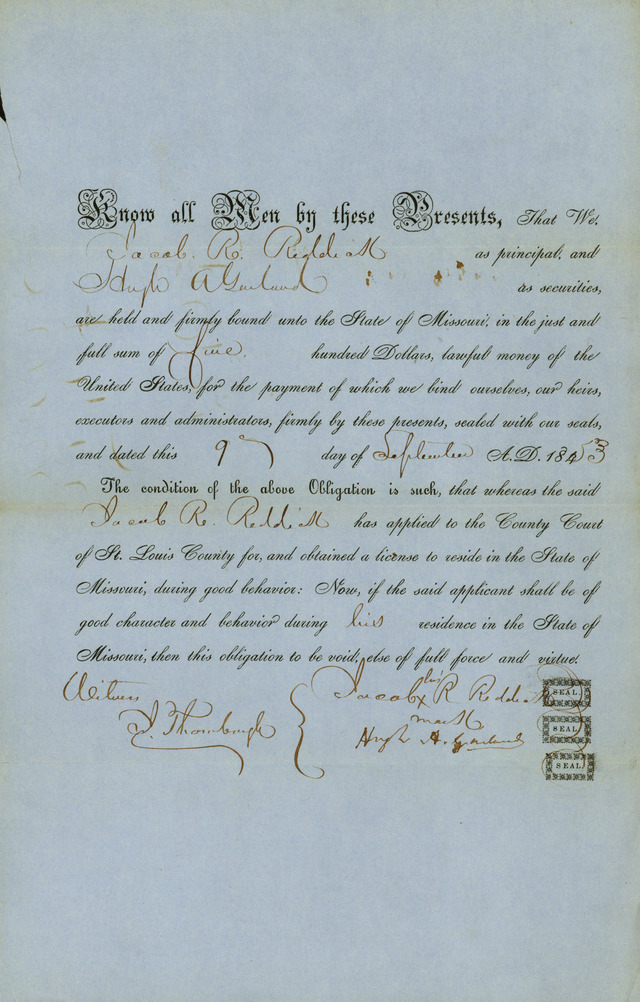 Know all Men by these Presents, That We,
Jacob. R. Reddick as principal, and
Hugh A Garland as securities,
are held and firmly bound unto the State of Missouri, in the just and
full sum of five. hundred Dollars, lawful money of the
United States, for the payment of which we bind ourselves, our heirs,
executors and administrators, firmly by these presents, sealed with our seals,
and dated this 9 day of September A.D. 1853
The condition of the above Obligation is such, that whereas the said
Jacob R. Reddick has applied to the County Court
of St. Louis County for, and obtained a license to reside in the State of
Missouri, during good behavior: Now, if the said applicant shall be of
good character and behavior during his residence in the State of
Missouri, then this obligation to be void, else of full force and virtue.
Witness Jacob his x mark R Reddick SEAL
Thornburgh Hugh A. Garland SEAL
SEAL